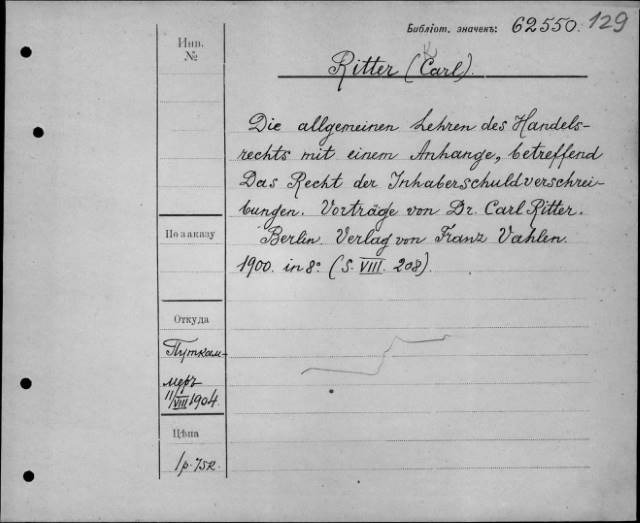 Библіот. значекъ: 62550. 129
Инв.
№
K
Ritter (Carl).
Die allgemeinen Lehren des Handels-
rechts mit einem Anhange, betreffend
Das Recht der Inhaberschuldverschrei-
bungen. Vorträge von Dr. Carl Ritter.
Berlin. Verlag von Franz Vahlen.
1900. in 8º (S. VIII. 208).
По заказу
Откуда
Путкам-
меръ
11/VIII 1904.
Цѣна
1р. 75к.